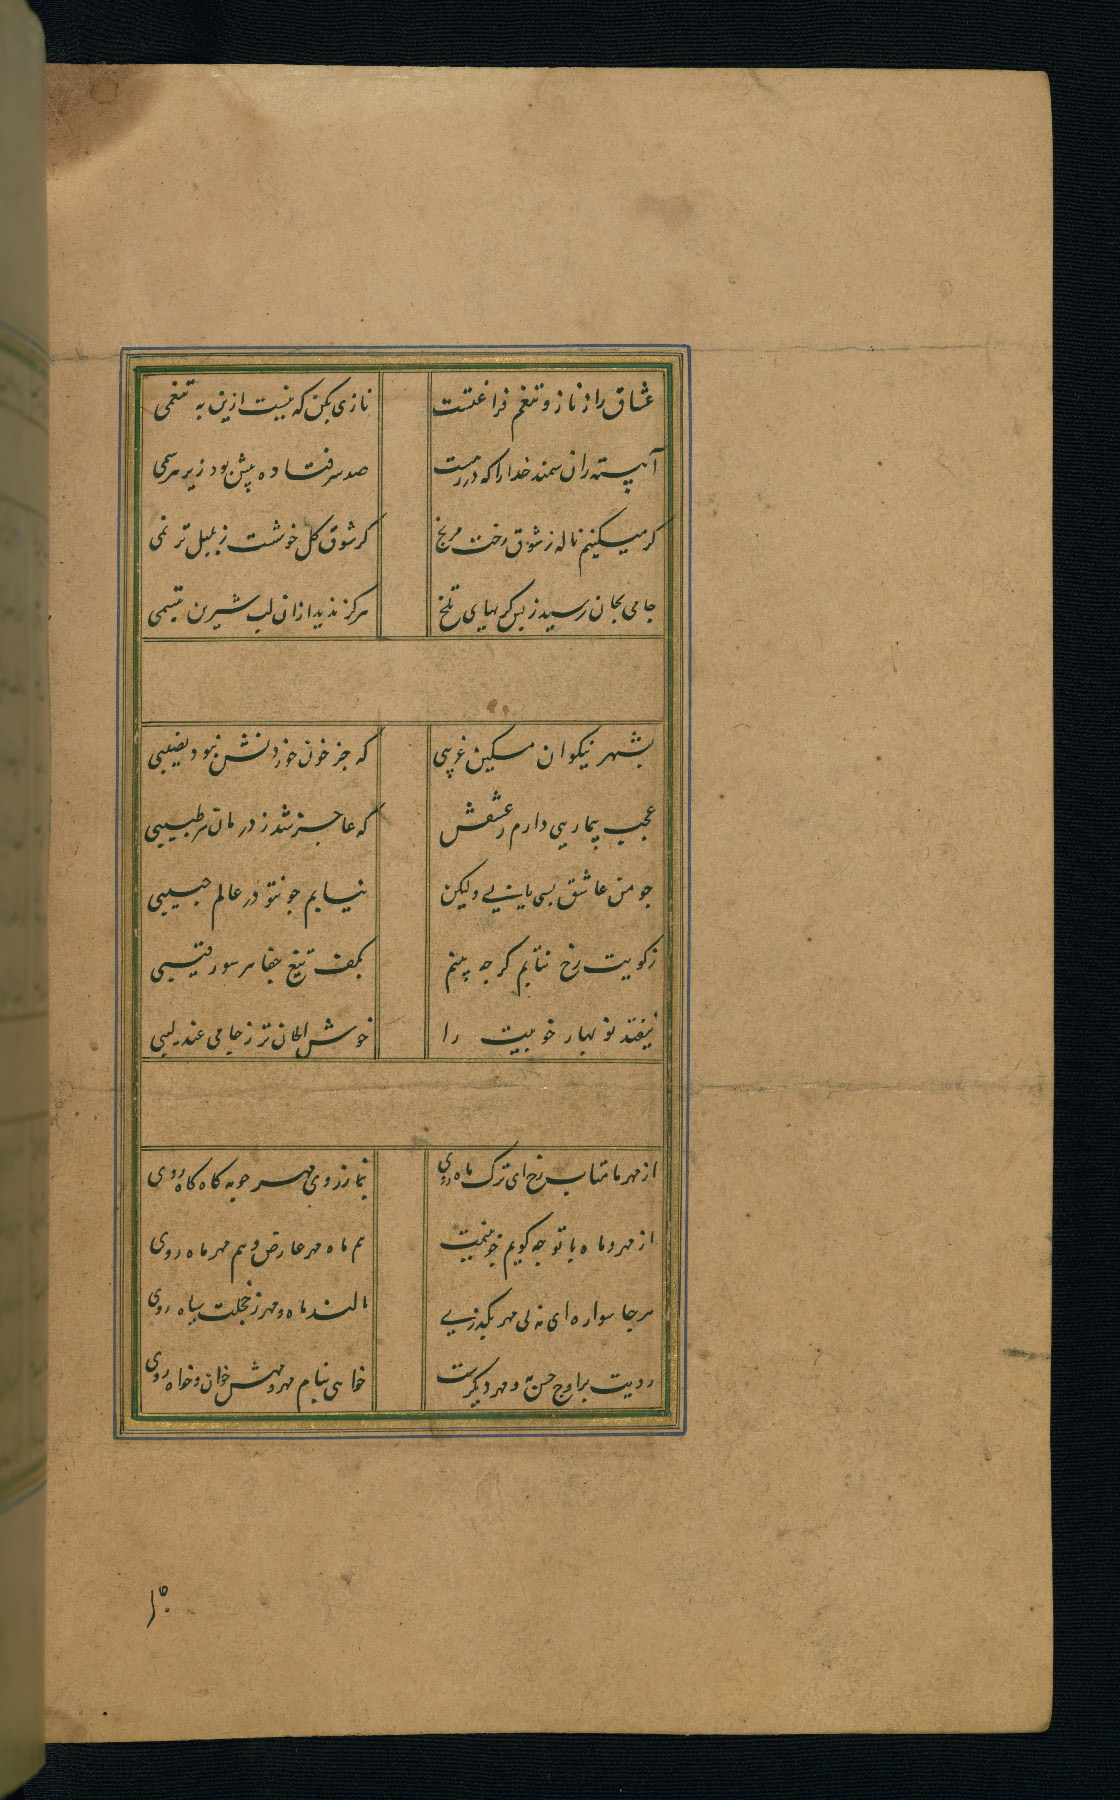 عشاق را ز ناز و تنعم فراغتست نازی بکن که نیست ازین به تنعمی
آهسته ران سمند خدا را که در رهت صد سر فتاده بیش بود زیر هر سمی
کر میکنیم ناله ز شوق رخت مرنج کز شوق کل خوشست ز بلبل ترنمی
جامی بجان رسید ز بس کریهای تلخ هرکز ندید ازان لب شیرین تبسمی
بشهر نیکوان مسکین غریبی که جز خون خوردنش نبود نصیبی
عجب بیماریی دارم ز عشقش که عاجز شد ز درمان هر طبیبی
جو من عاشق بسی یابی ولیکن نیابم جو تو در عالم حبیبی
ز کویت رخ نتابم کرجه بینم بکف تیغ جفا هر سو رقیبی
نیفتد نو بهار خوبیت را خوش الحان تر ز جامی عندلیبی
از مهر ما متاب رخ ای ترک ماه روی بنما ز زوی مهر جو مه کاه کاه روی
از مهر و ماه با تو جه کویم جو بینمت هم ماه مهر عارض و هم مهر ماه روی
هر جا سواره ای مه بی مهر بکذری مالند ماه و مهر ز خجلت براه روی
رویت بر اوج حسن مه و مهر دیکرست خواهی بنام مهر و مهش خوان و خواه روی